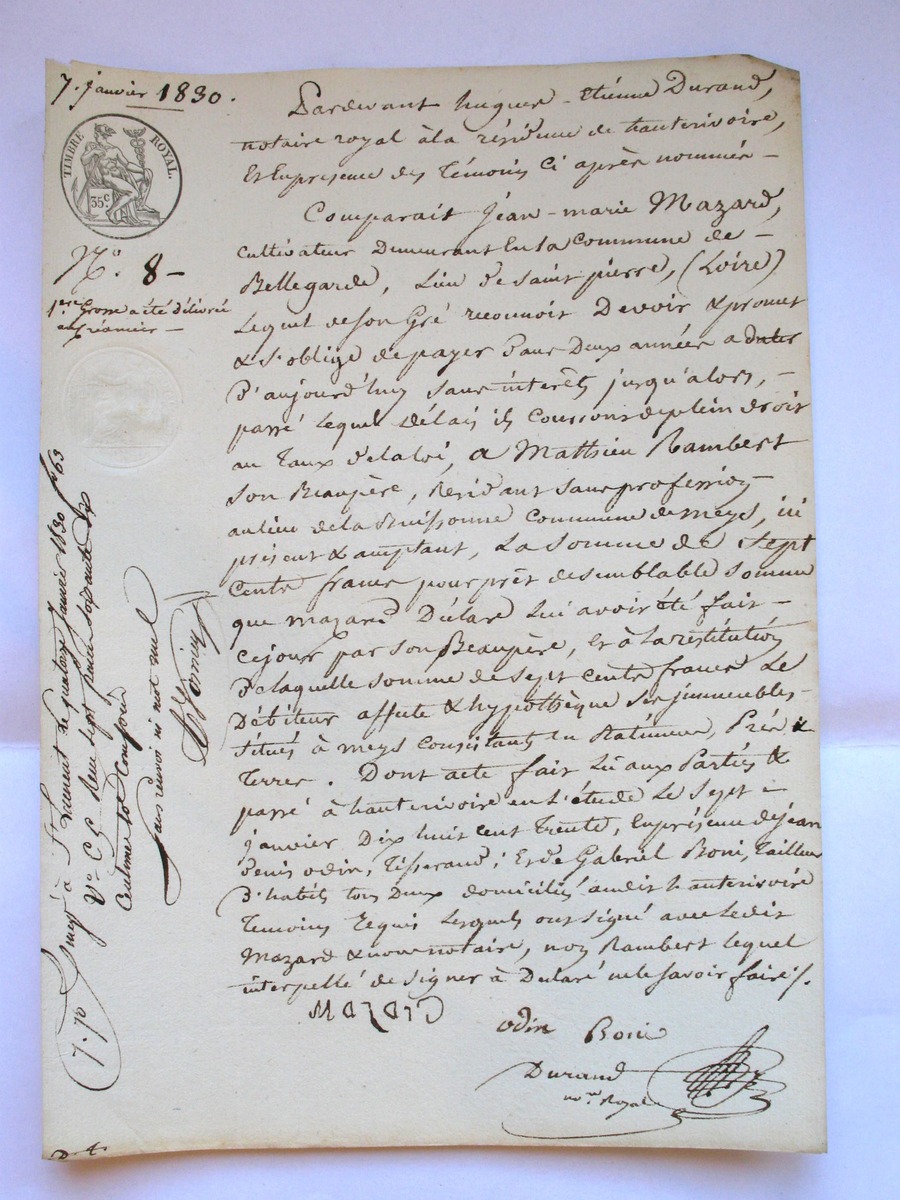 7. janvier 1830.
TIMBRE ROYAL.
35c
No. 8 -
1ere Grosse a été délivrée
au créancier -
Pardevant hugues - Etiénne Durand,
notaire royal à la résidence de hauterivoire,
Et En présence des Témoins Ci après nommés -
Comparait Jéan-marie Mazard,
Cultivateur Demeurant En la Commune de -
Bellegarde, Lieu de saint pierre, (Loire)
Lequel de son Gré reconnoit Devoir & promet
& s'oblige de payer dans Deux années a dater
d'aujourd'huy sans intérêts jusqu'alors, -
passé lequel délais ils Courront de plein droit
au Taux de la loi, a Mathieu Rambert
son Beaupère, Résidant sans profession
au lieu de la Buissonne Commune de meys, ici
présent & acceptant, La Somme de Sept
Cents francs pour prêt de semblable somme
que mazard Déclare Lui avoir été fait -
Cejour par son Beaupère, Et à La restitution
de laquelle somme de Sept Cents francs Le
Débiteur affecte & hypothèque ses immeubles
situés à meys Consistants En Batiments, Prés &
Terres. Dont acte fait Lû aux Parties &
passé à hauterivoire en L'étude Le Sept -
janvier Dix huit cent Trente, En présence de jean
denis odin, Tisserand; Et de Gabriel Boni, Tailleur
d'habits tous Deux domiciliés audit hauterivoire
Temoins Requis Lesquels ont signé avec Ledit
Mazard & nous notaire, non Rambert lequel
interpellé de signer à Déclaré ne le savoir faire /.
odin Boni
Durand
nore Royal
7. 70
Enregé à St Laurent le quatorze Janvier 1830 fo 63
Vo C 5 Reçu sept francs soixante dix
Centimes 10e Compris
sans renvoi ni mot nul